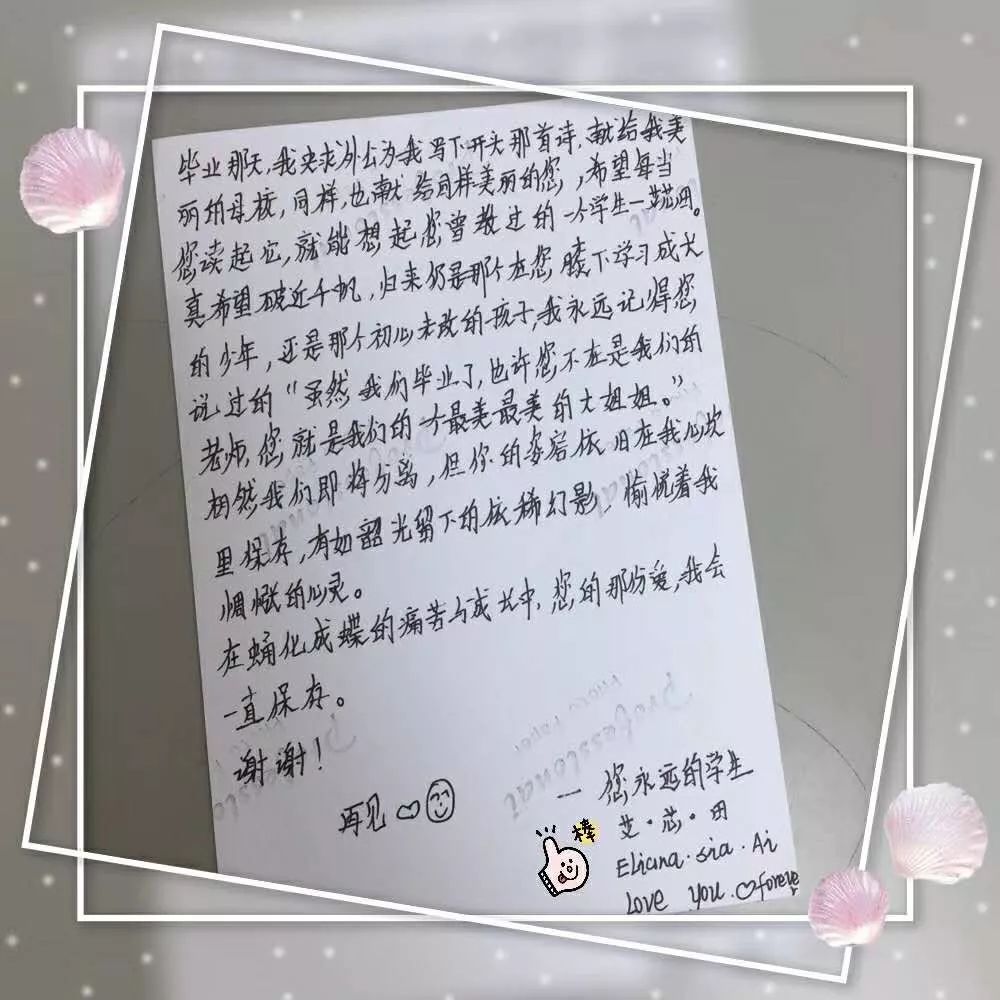 毕业那天，我央求外公为我写下开头那首诗，献给我美
丽的母校，同样，也献给同样美丽的您，希望每当
您读起它，就能想起您曾教过的一个学生一芯田。
真希望破近千帆，归来仍是那个在您膝下学习成长
的少年，还是那个初心未改的孩子，我永远记得您
说过的“虽然我们毕业了，也许您不在是我们的
老师，您就是我们的一个最美最美的大姐姐。”
相然我们即将分离，但你的姿容依旧在我心坎
里保存，有如韶光留下的依稀幻影，愉悦着我
惆怅的心灵。
在蛹化成蝶的痛苦与成长中，您的那份爱，我会
一直保存。
谢谢！
再见
一 您永远的学生
艾·芯·田
Eliana·sia·Ai
Love you forever
棒
Professional
PHOTO PAPER